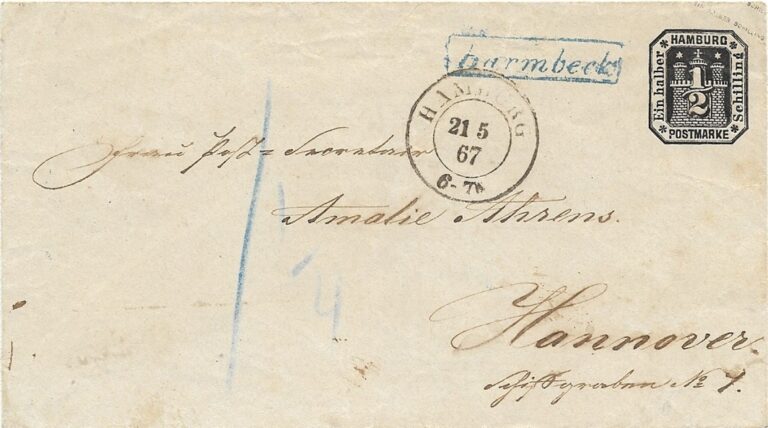 HAMBURG
Ein halber
Schilling
1/2
POSTMARKE
Barmbeck
HAMBURG
21 5
67
6-7
Frau Post-Secretair
Amalie Ahrens.
Hannover.
Schiffgraben No 7.
1
4